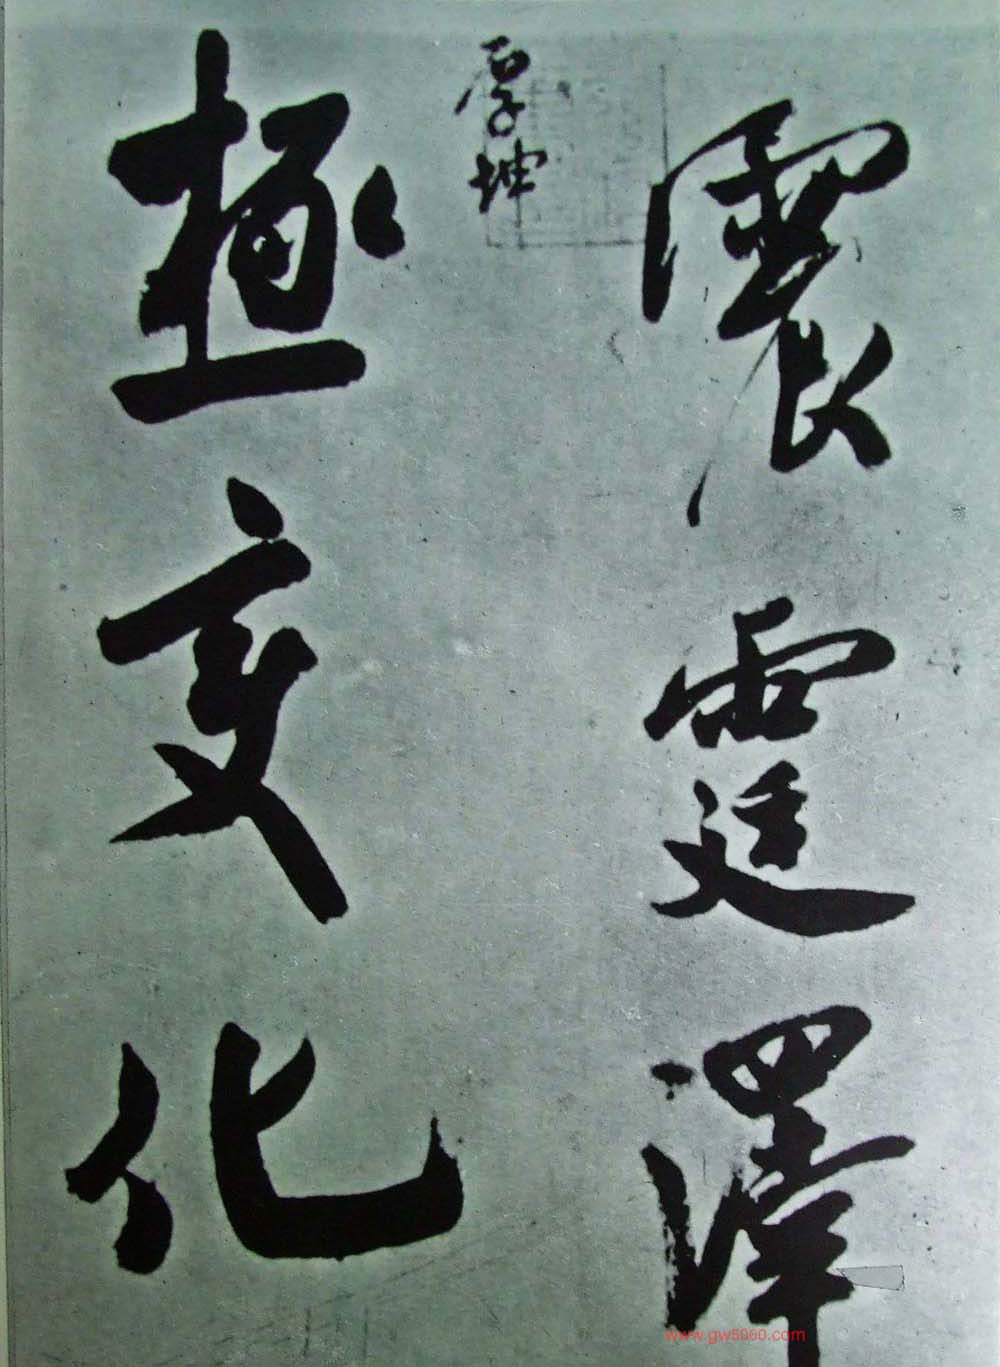 震霆澤
厚坤
極變化
www.gw5000.com